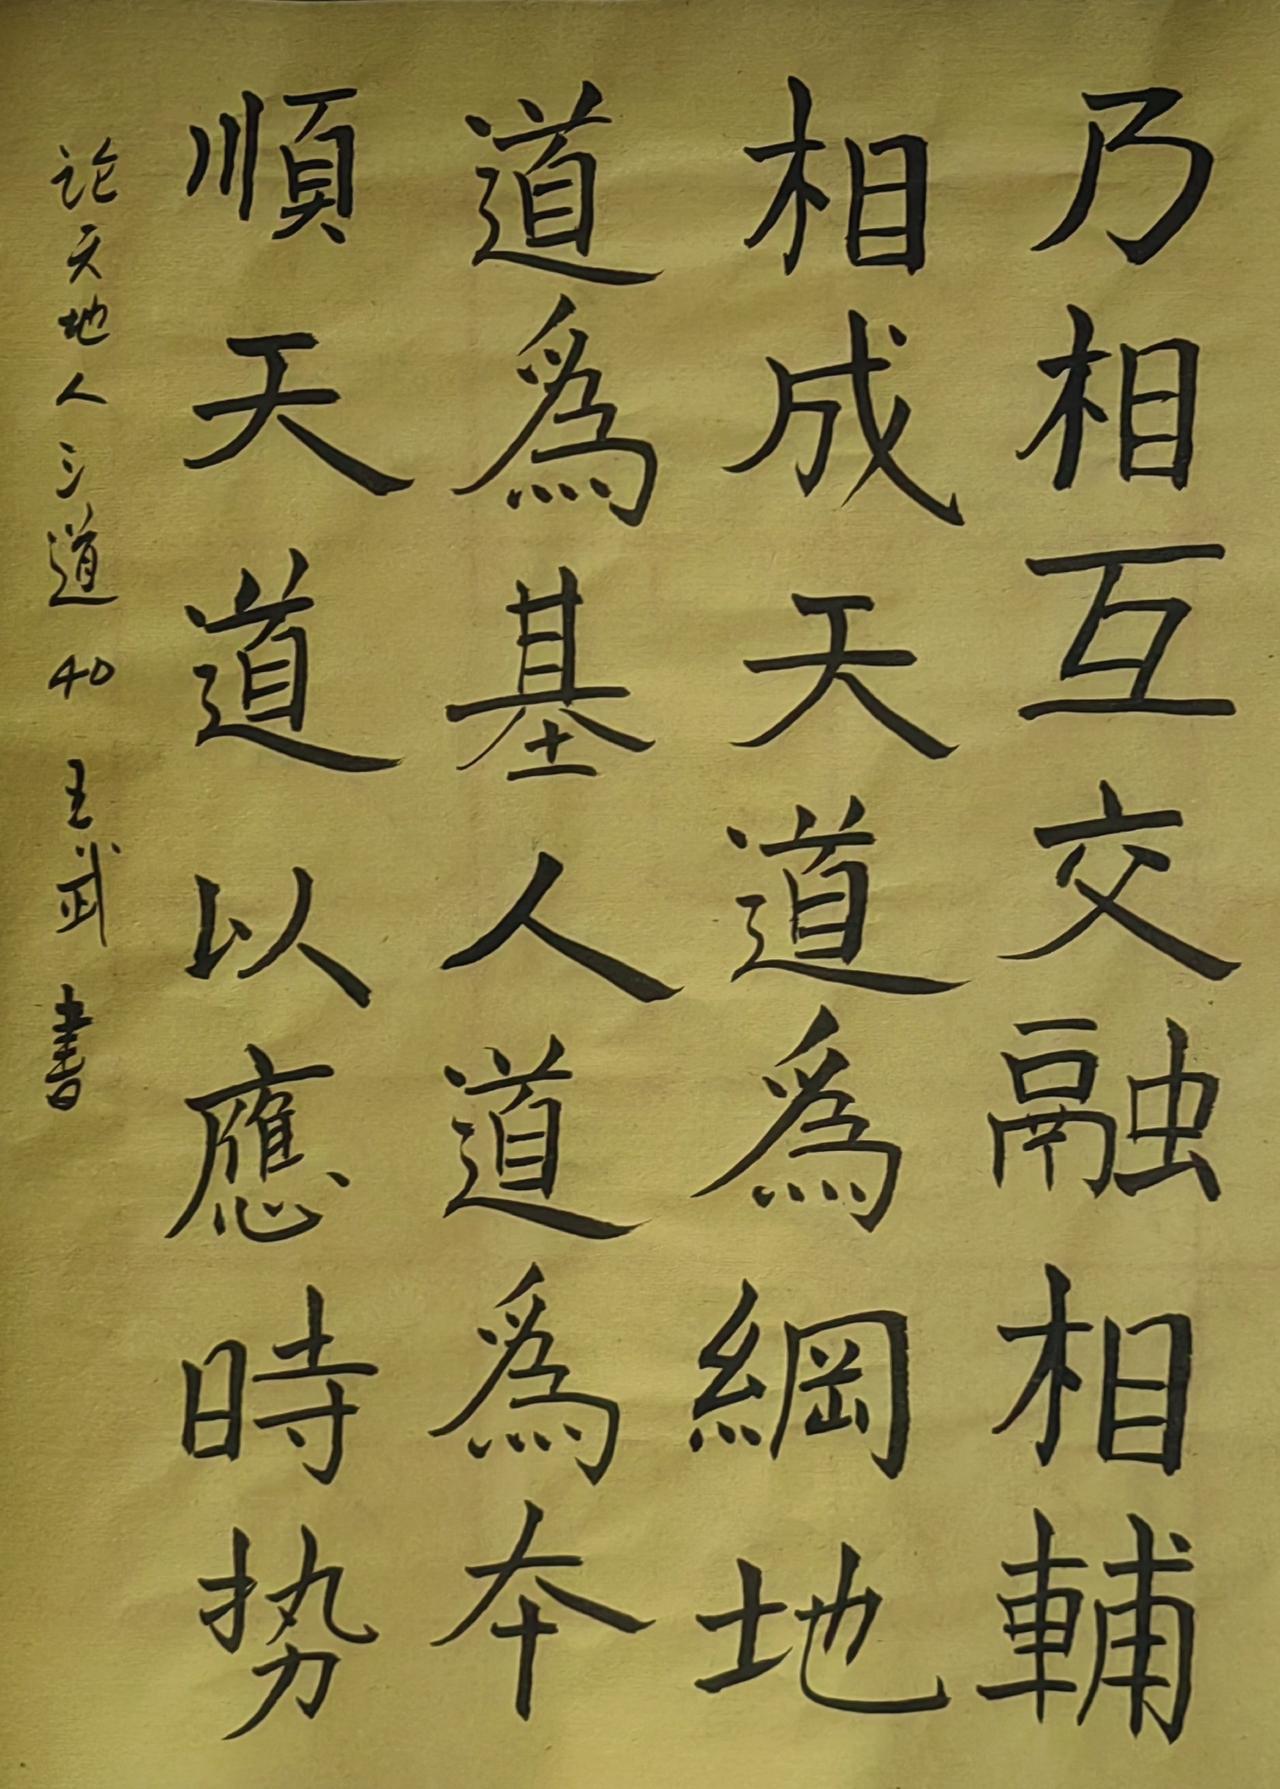 乃相互交融相輔
相成天道為綱地
道為基人道為本
順天道以應時势
论天地人三道 40 王武 書